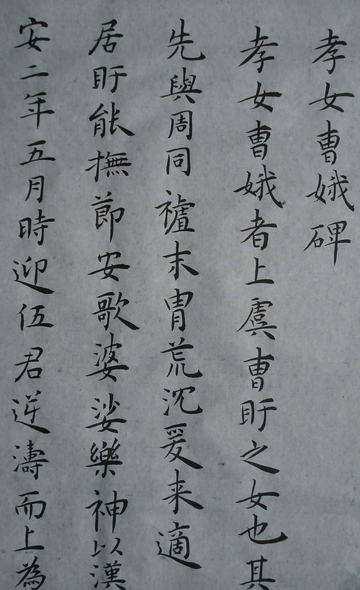 孝女曹娥碑
孝女曹娥者上虞曹盱之女也其
先與周同祖末胄荒沈爰来適
居盱能撫節安歌婆娑樂神以漢
安二年五月時迎伍君逆濤而上為